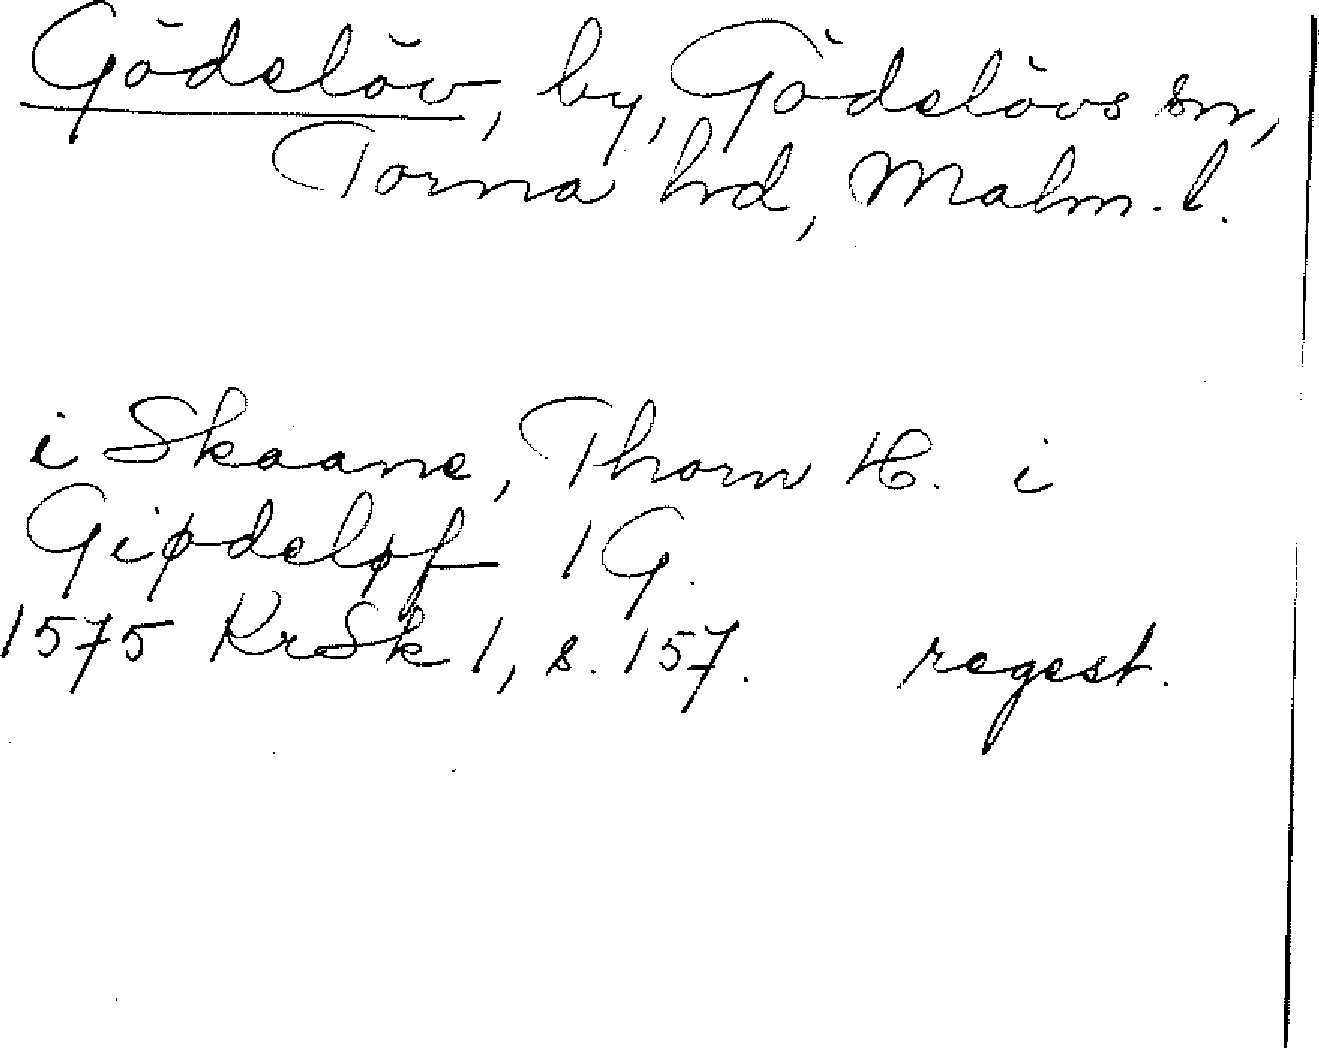 Gödelöv, by, Gödelövs sn,
Torna hd, Malm. l.
i Skaane, Thorn H. i
Giødeløf 1 G.
1575 KrSk 1, s. 157. regest.